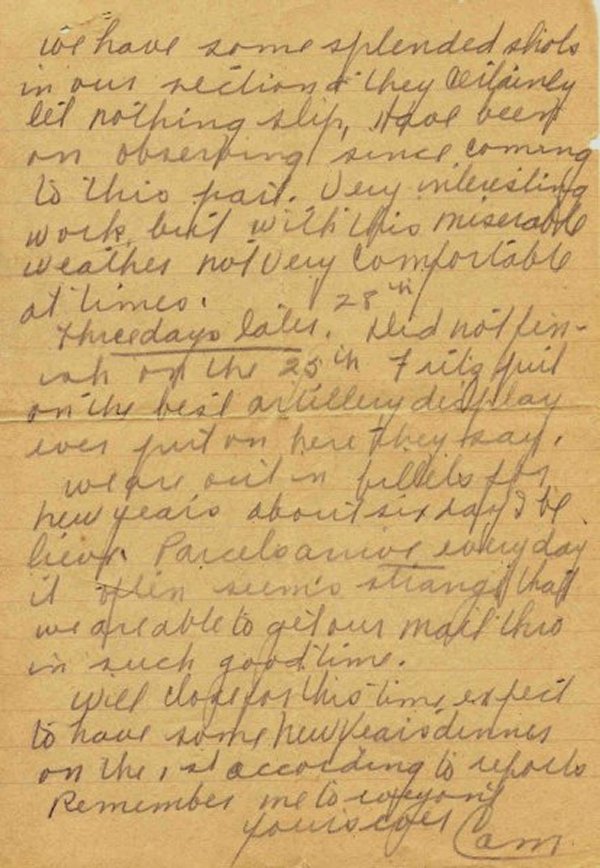 we have some splended shots
in our section & they certainly
let nothing slip, Have been
on observing since coming
to this part. Very interesting
work, but with this miserable
weather not very comfortable
at times. 28th
Three days later. Did not fin-
ish on the 25th Fritz put
on the best artillery display
ever put on here they say.
we are out in billets for
new years about six days I be
lieve. Parcels arrive everyday
it often seems strange that
we are able to get our mail thro
in such good time.
will close for this time, expect
to have some New Years dinner
on the 1st according to reports
Remember me to everyone
yours ever Cam.